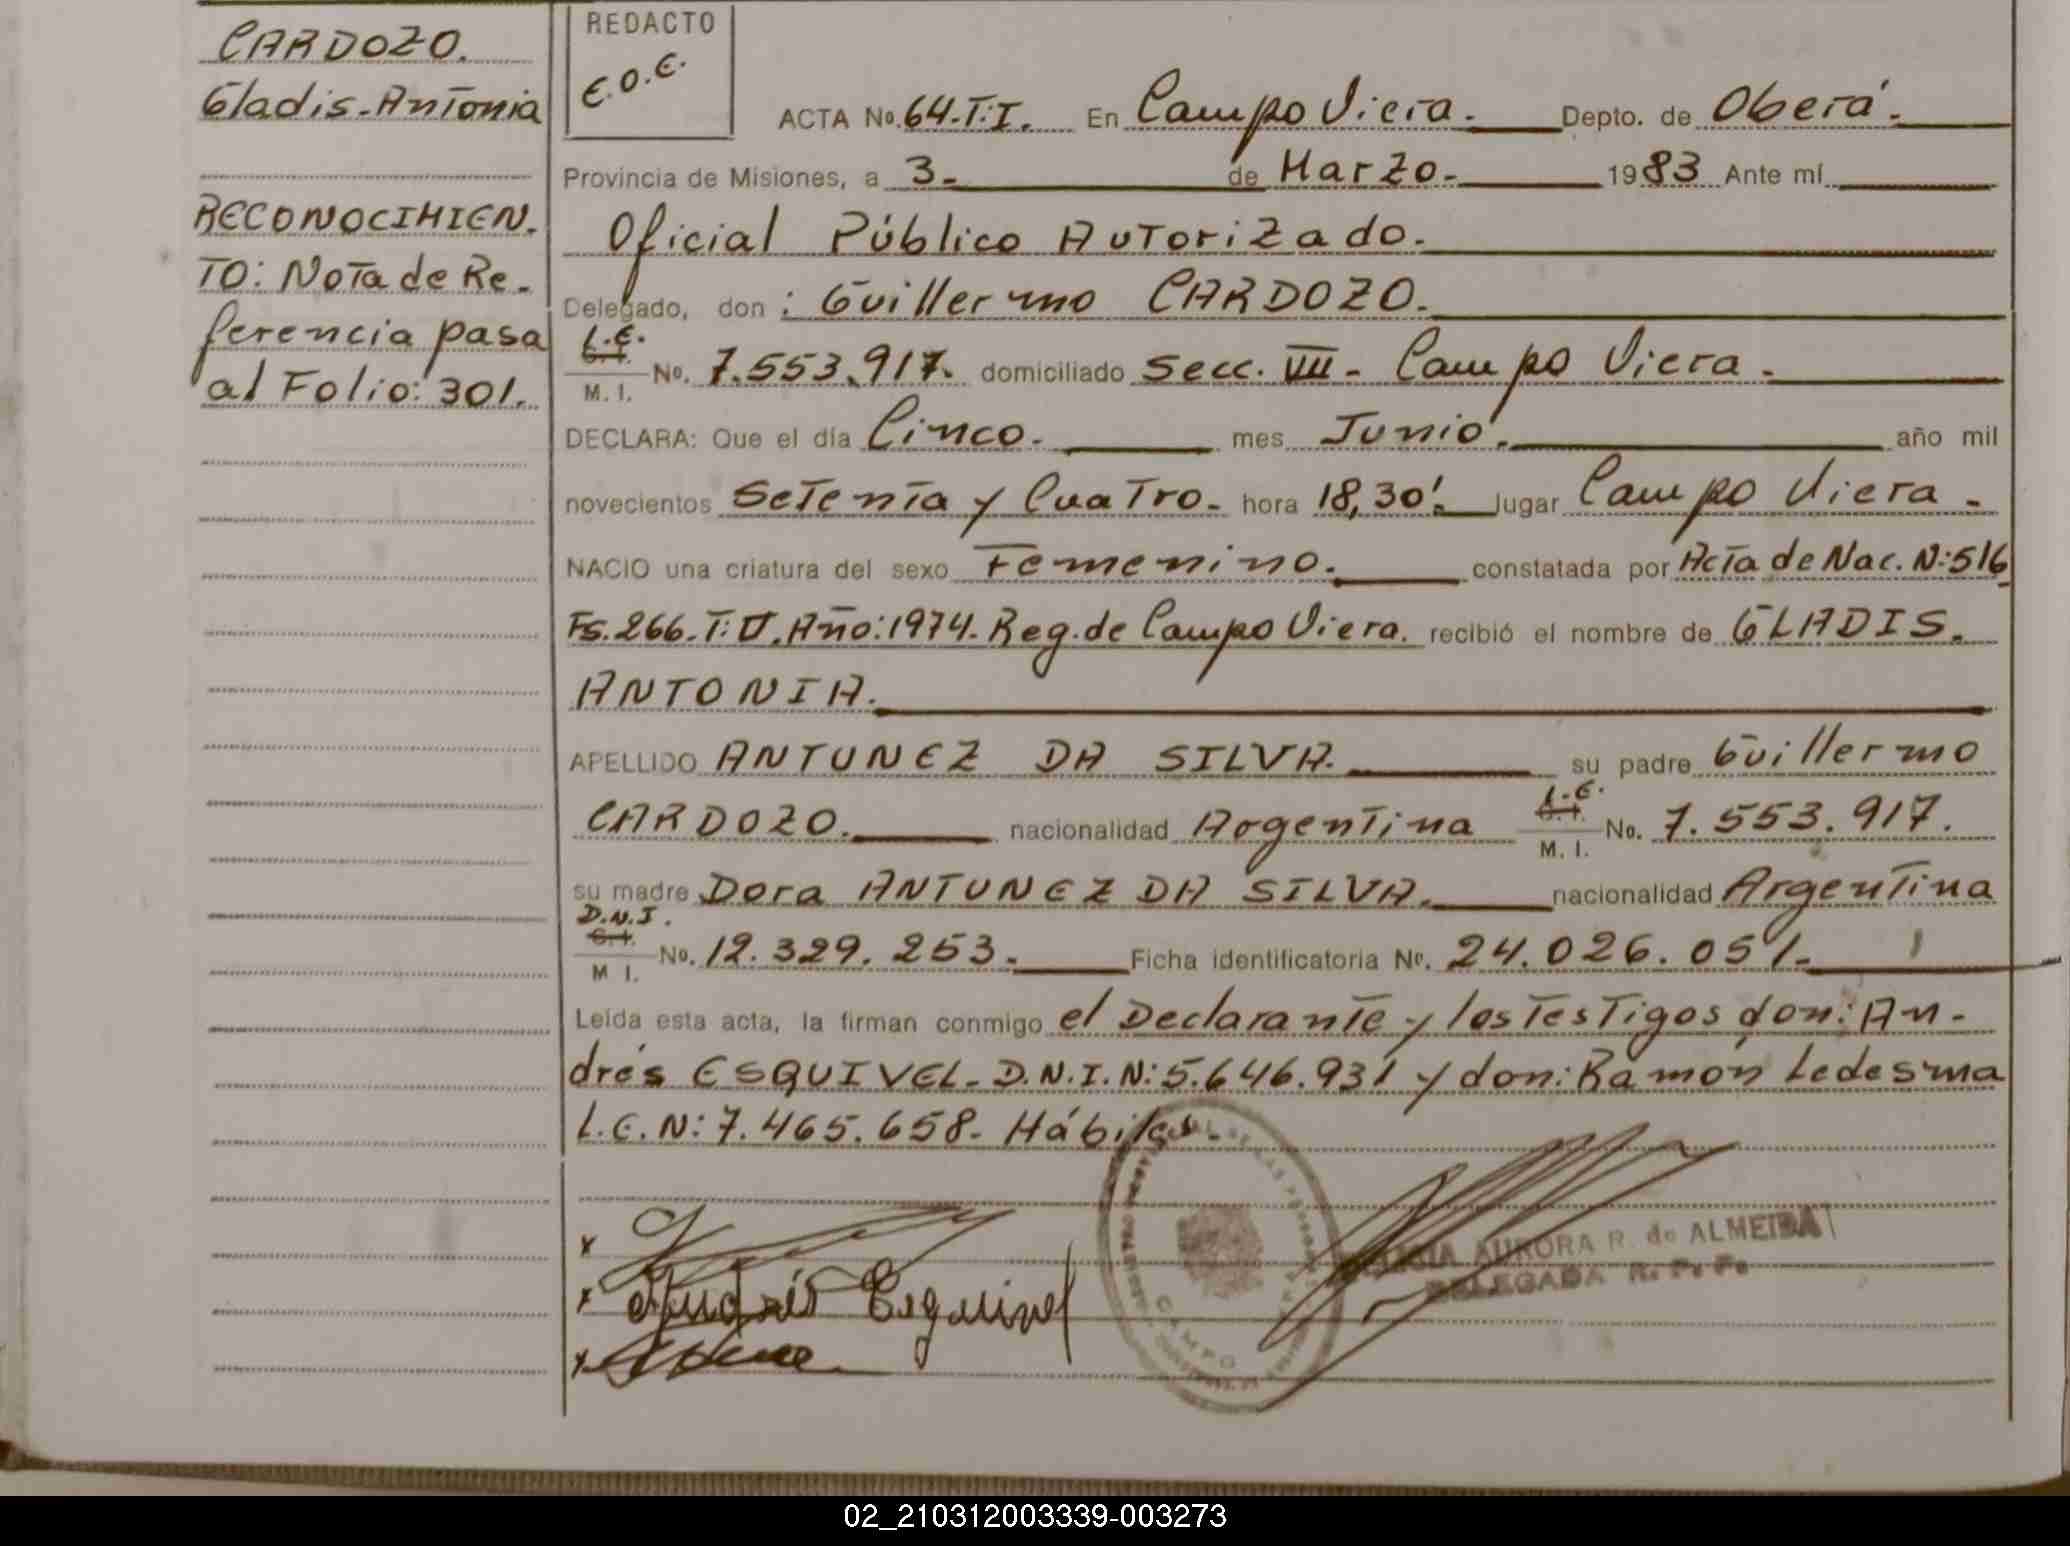 CARDOZO.
Gladis-Antonia
RECONOCIMIEN.
TO: Nota de Re-
ferencia pasa
al Folio: 301.
REDACTO
E.O.E.
ACTA No. 64-T:I. En Campo Viera. Depto. de Oberá.
Provincia de Misiones, a 3- de Marzo- 1983 Ante mí
Oficial Público Autorizado.
Delegado, don : Guillermo CARDOZO.
L.E.
C.I.
M. I. No. 7.553.917. domiciliado Secc. VIII- Campo Viera.
DECLARA: Que el día Cinco. mes Junio. año mil
novecientos Setenta y Cuatro- hora 18,30'. lugar Campo Viera-
NACIO una criatura del sexo Femenino. constatada por Acta de Nac. N:516
Fs.266-T:II.Año:1974-Reg.de Campo Viera. recibió el nombre de GLADIS.
ANTONIA.
APELLIDO ANTUNEZ DA SILVA. su padre Guillermo
CARDOZO. nacionalidad Argentina L.E. C.I. M. I. No. 7.553.917.
su madre Dora ANTUNEZ DA SILVA. nacionalidad Argentina
D.N.I.
C.I.
M I. No. 12.329.253. Ficha identificatoria No. 24.026.051.
Leída esta acta, la firman conmigo el Declarante y los Testigos don: An-
drés ESQUIVEL- D.N.I.N:5.646.931 y don: Ramón Ledesma
L.E.N:7.465.658- Hábiles-
x
x Andrés Esquivel
x
CAMPO
AURORA R. de ALMEIDA
DELEGADA R. P. P.
02_210312003339-003273